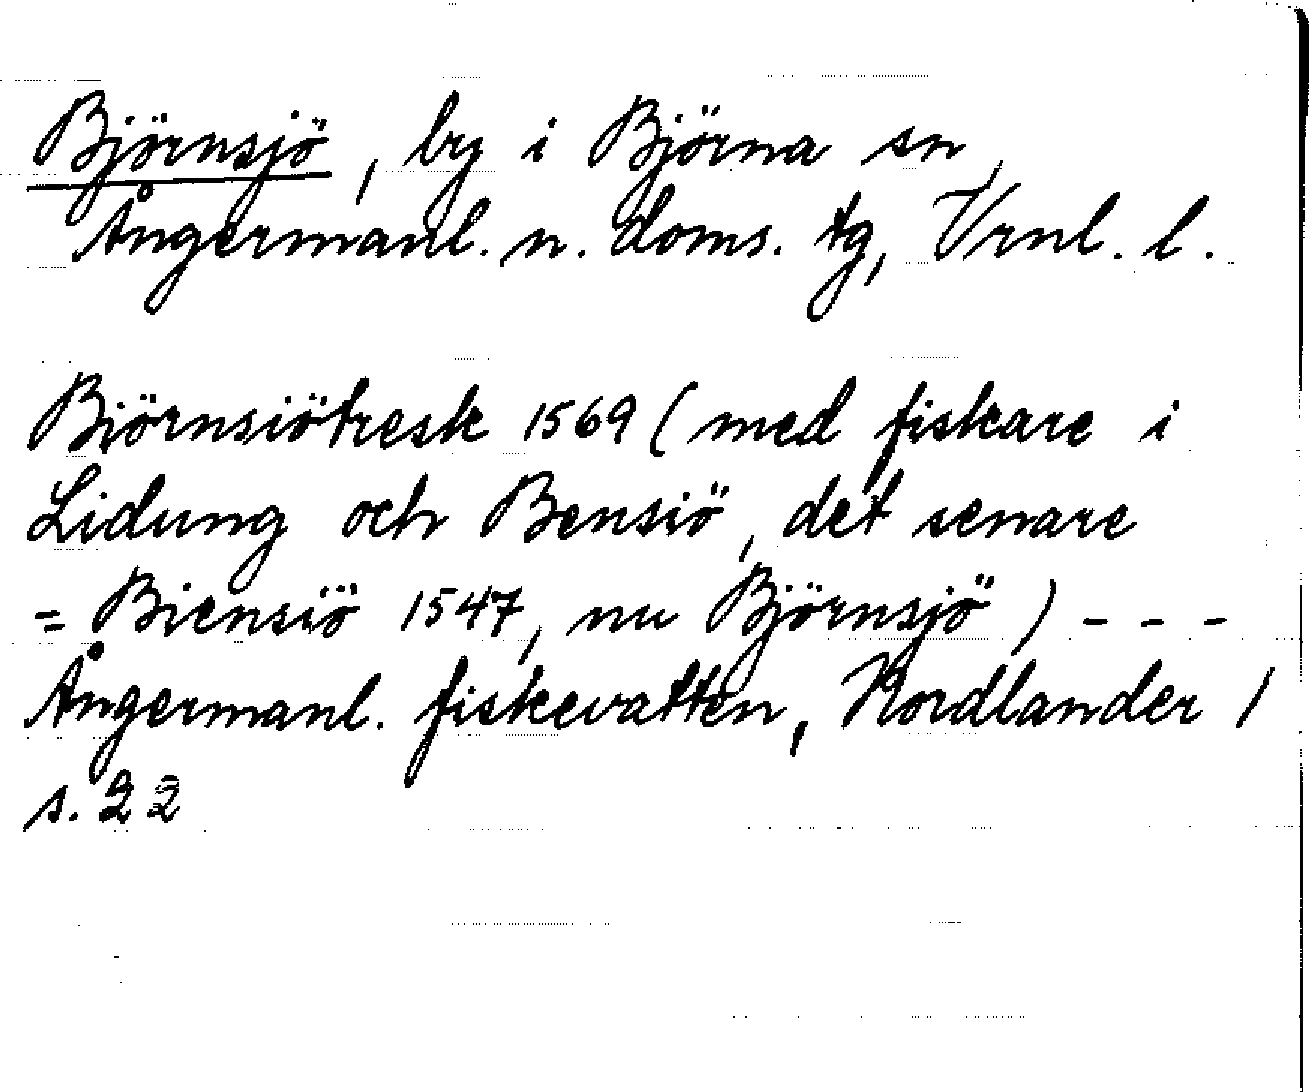 Björnsjö, by i Björna sn,
Ångermanl. n. doms. tg, Vrnl. l.
Biörnsiötresk 1569 (med fiskare i
Lidung och Bensiö, det senare
= Biensiö 1547, nu Björnsjö) - - -
Ångermanl. fiskevatten, Nordlander 1
s. 22